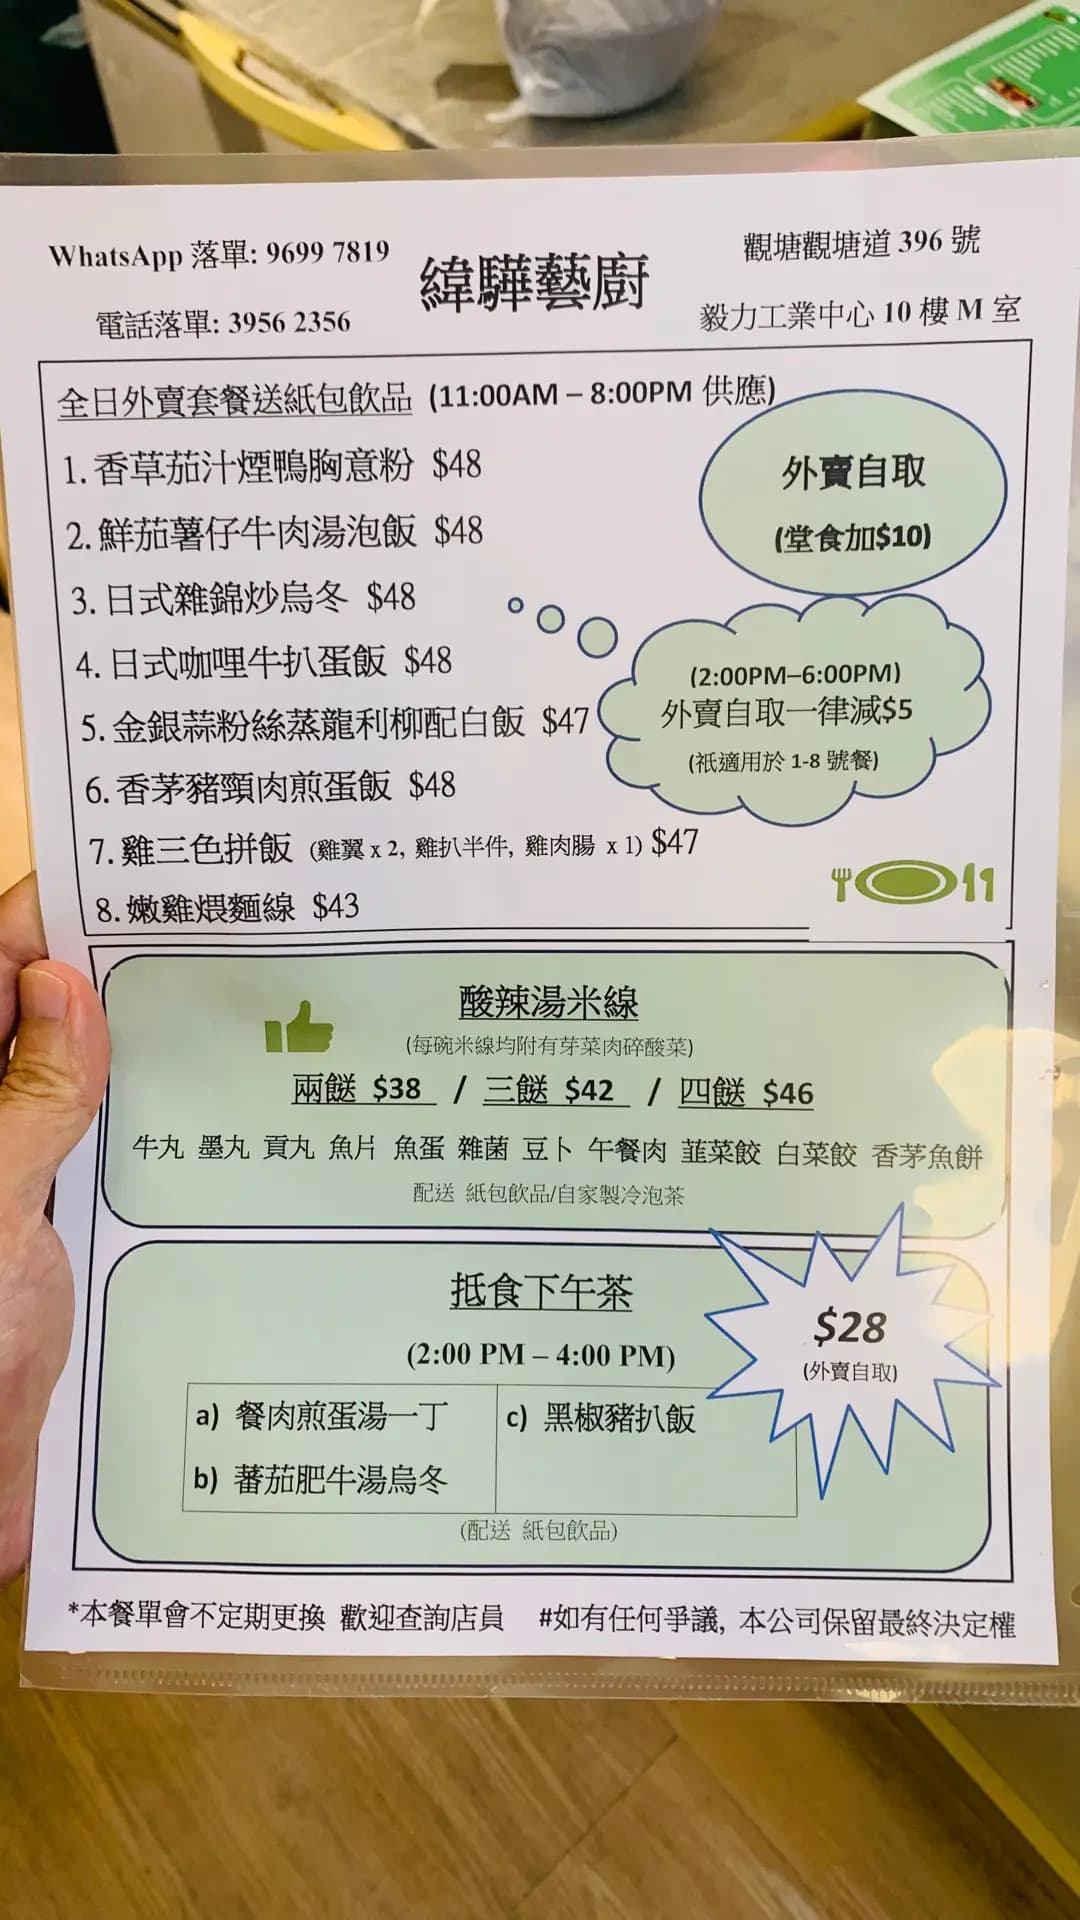 WhatsApp 落單: 9699 7819
緯驊藝廚
觀塘觀塘道 396 號
電話落單: 3956 2356
毅力工業中心 10 樓 M 室
全日外賣套餐送紙包飲品 (11:00AM – 8:00PM 供應)
1. 香草茄汁煙鴨胸意粉 $48
2. 鮮茄薯仔牛肉湯泡飯 $48
3. 日式雜錦炒烏冬 $48
4. 日式咖哩牛扒蛋飯 $48
5. 金銀蒜粉絲蒸龍利柳配白飯 $47
6. 香茅豬頸肉煎蛋飯 $48
7. 雞三色拼飯 (雞翼 x 2, 雞扒半件, 雞肉腸 x 1) $47
8. 嫩雞煨麵線 $43
外賣自取
(堂食加$10)
(2:00PM–6:00PM)
外賣自取一律減$5
(祇適用於 1-8 號餐)
酸辣湯米線
(每碗米線均附有芽菜肉碎酸菜)
兩餸 $38 / 三餸 $42 / 四餸 $46
牛丸 墨丸 貢丸 魚片 魚蛋 雜菌 豆卜 午餐肉 韮菜餃 白菜餃 香茅魚餅
配送 紙包飲品/自家製冷泡茶
抵食下午茶
(2:00 PM – 4:00 PM)
$28
(外賣自取)
a) 餐肉煎蛋湯一丁
b) 蕃茄肥牛湯烏冬
c) 黑椒豬扒飯
(配送 紙包飲品)
*本餐單會不定期更換 歡迎查詢店員 #如有任何爭議, 本公司保留最終決定權